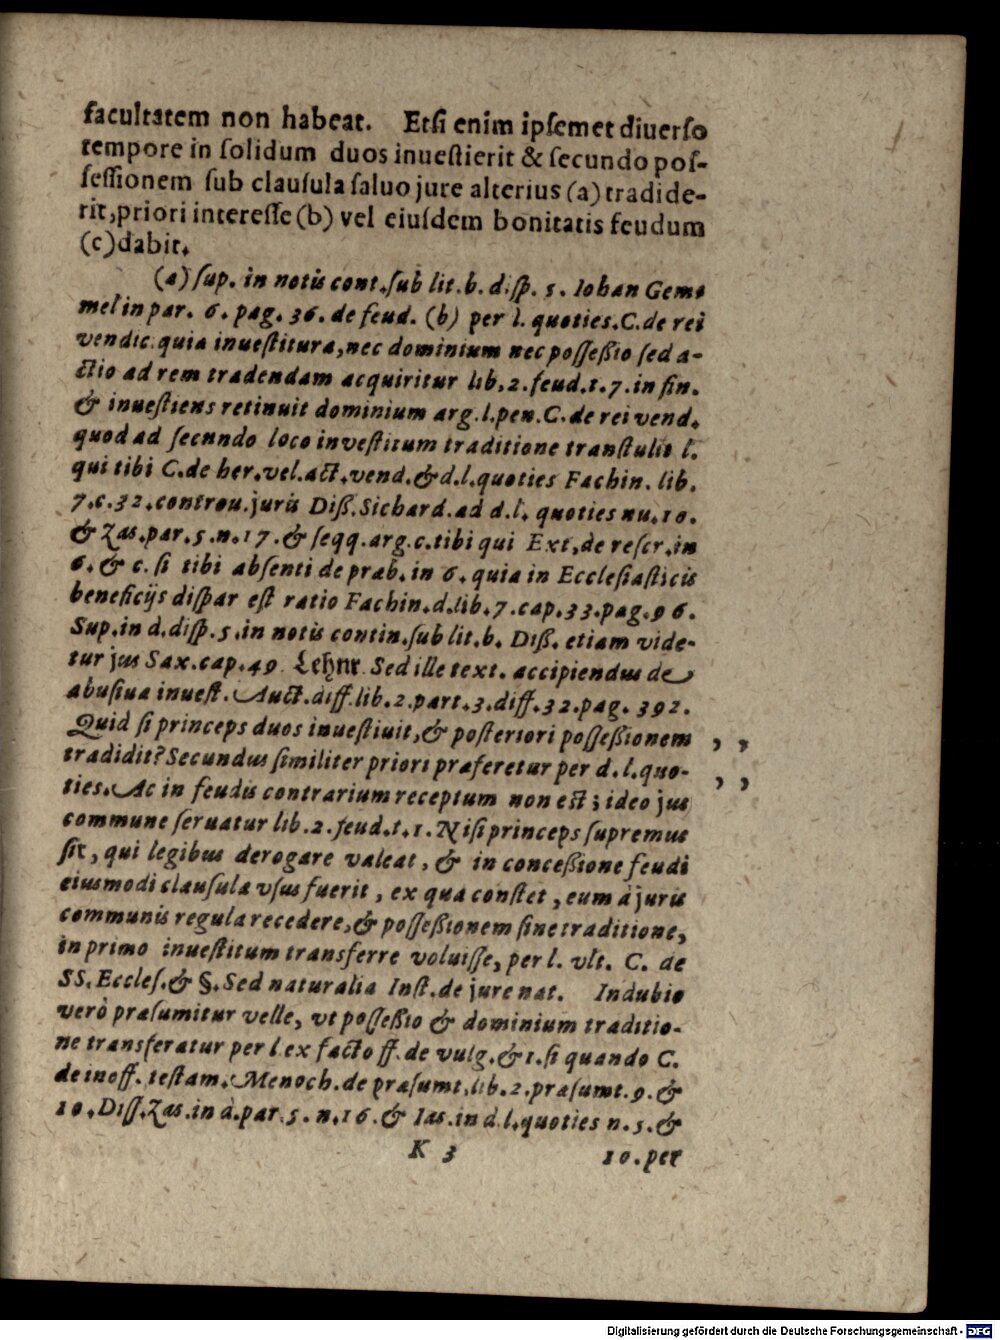 facultatem non habeat. Etſi enim ipſemet diuerſo
tempore in ſolidum duos inueſtierit & ſecundo poſ-
ſeſſionem ſub clauſula ſaluo jure alterius (a) tradide-
rit, priori intereſſe (b) vel eiuſdem bonitatis feudum
(c) dabit.
(a) ſup. in notis cont. ſub lit. b. diſp. 5. Iohan Gemo
mel in par. 6. pag. 36. de feud. (b) per l. quoties. C. de rei
vendic. quia inueſtitura, nec dominium nec poſſeßio ſed a-
ctio ad rem tradendam acquiritur lib. 2. feud. t. 7. in fin.
& inueſtiens retinuit dominium arg. l. pen. C. de rei vend.
quod ad ſecundo loco inveſtitum traditione tranſtulit l.
qui tibi C. de her. vel. act. vend. & d. l. quoties Fachin. lib.
7. c. 32. controu. juris Diß. Sichard. ad d. l. quoties nu. 10.
& Zas. par. 5. n. 17. & ſeqq. arg. c. tibi qui Ext. de reſcr. in
6. & c. ſi tibi abſenti de præb. in 6. quia in Eccleſiaſticis
beneficijs diſpar eſt ratio Fachin. d. lib. 7. cap. 33. pag. 96.
Sup. in d. diſp. 5. in notis contin. ſub lit. b. Diß. etiam vide-
tur jus Sax. cap. 49. Lehnr. Sed ille text. accipiendus de
abuſiua inueſt. Auct. diff. lib. 2. part. 3. diff. 32. pag. 392.
Quid ſi princeps duos inueſtiuit, & poſteriori poſſeßionem , ,
tradidit? Secundus ſimiliter priori præferetur per d. l. quo- , ,
ties. Ac in feudis contrarium receptum non eſt; ideo jus
commune ſeruatur lib. 2. feud. t. 1. Niſi princeps ſupremus
ſit, qui legibus derogare valeat, & in conceßione feudi
eiusmodi clauſula vſus fuerit, ex qua conſtet, eum à juris
communis regula recedere, & poſſeßionem ſine traditione,
in primo inueſtitum transferre voluiſſe, per l. vlt. C. de
SS. Eccleſ. & §. Sed naturalia Inſt. de jure nat. In dubio
verò præſumitur velle, vt poſſeßio & dominium traditio-
ne transferatur per l. ex facto ff. de vulg. & l. ſi quando C.
de inoff. teſtam. Menoch. de præſumt. lib. 2. præſumt. 9. &
10. Diſſ. Zas. in d. par. 5. n. 16. & Ias. in d. l. quoties n. 5. &
K 3 10. per
Digitalisierung gefördert durch die Deutsche Forschungsgemeinschaft - DFG